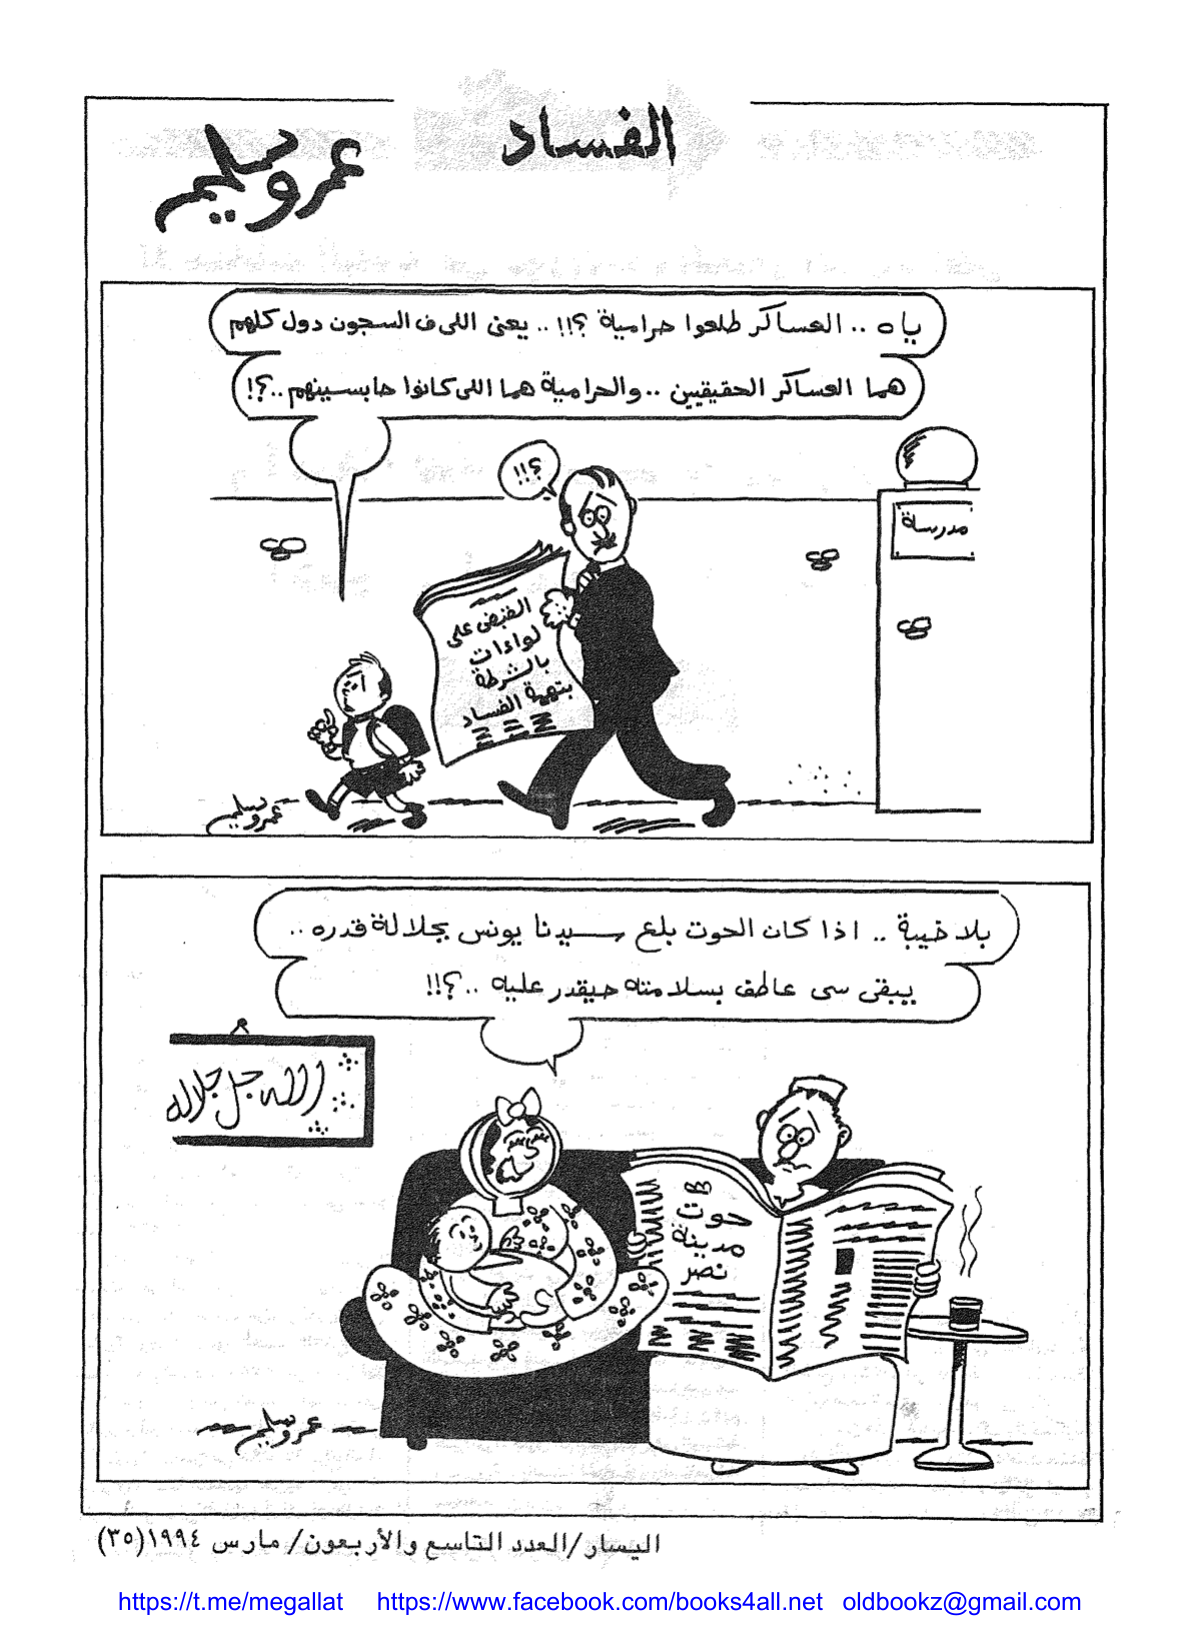 الفساد
عمرو سليم
ياه .. العساكر طلعوا حرامية ؟!! .. يعنى اللى ف السجون دول كلهم
هما العساكر الحقيقيين .. والحرامية هما اللى كانوا حابسينهم ..؟!
؟!!
مدرسة
القبض على
لواءات
بالشرطة
بتهمة الفساد
عمرو سليم
بلا خيبة .. اذا كان الحوت بلع سيدنا يونس بجلالة قدره ..
يبقى سى عاطف بسلامته حيقدر عليه ..؟!!
الله جل جلاله
حوت
مدينة
نصر
عمرو سليم
اليسار/العدد التاسع والأربعون/ مارس ١٩٩٤(٣٥)
https://t.me/megallat https://www.facebook.com/books4all.net oldbookz@gmail.com